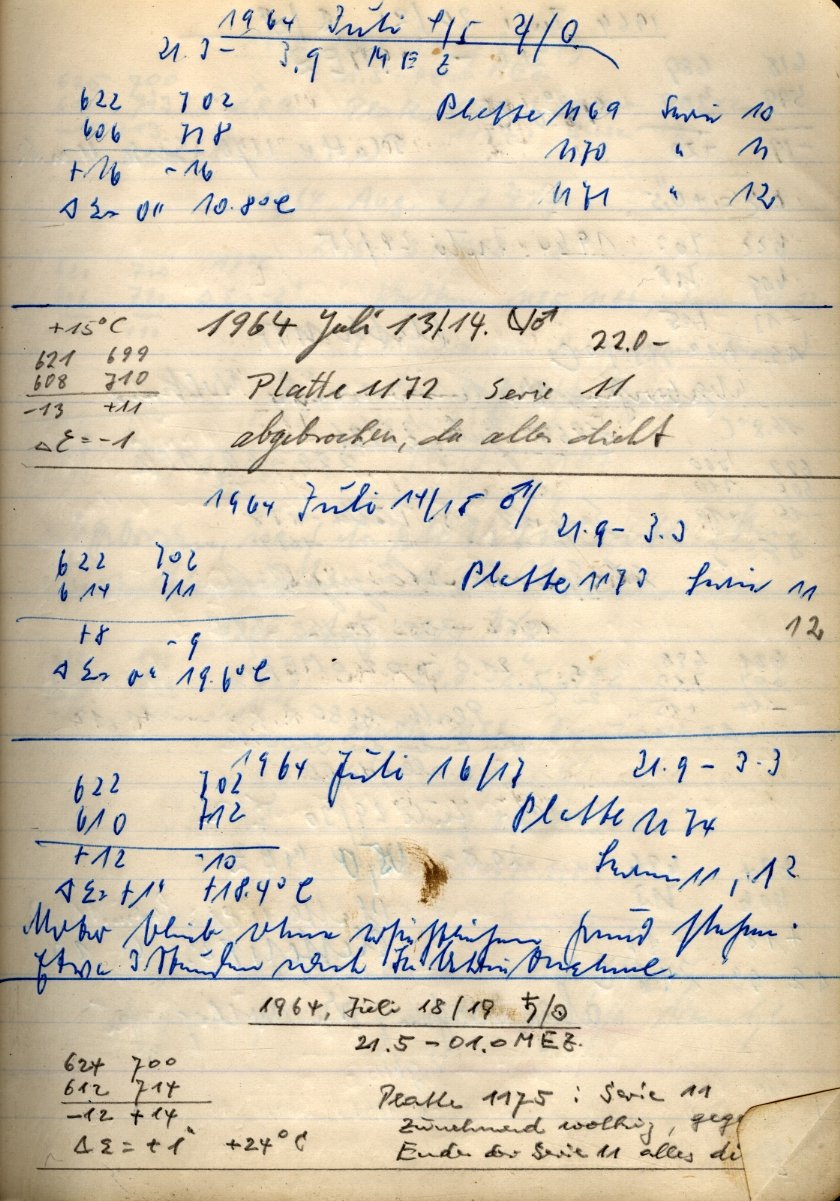 1964 Juli 4/5 ♄/☉
21.3 – 3.9 MEZ
622 702 Platte 1169 Serie 10
606 718 1170 " 11
+16 -16 1171 " 12
Δ Σ = 0" 10.8°C
+15°C 1964 Juli 13/14. ☾/♂ 22.0 –
621 699
608 710 Platte 1172 Serie 11
-13 +11
Δ Σ = -1 abgebrochen, da alles dicht
1964 Juli 14/15 ♂/
21.9 – 3.3
622 702 Platte 1173 Serie 11
614 711 12
+8 -9
Δ Σ = 0" 19.6°C
1964 Juli 16/17 21.9 – 3.3
622 702
610 712 Platte 1174
+12 -10 Serie 11, 12
Δ Σ = +1" +18.4°C
Motor blieb ohne ersichtlichen Grund stehen.
Etwa 3 Stunden nach Inbetriebnahme.
1964, Juli 18/19 ♄/☉
21.5 – 01.0 MEZ.
624 700
612 714 Platte 1175 : Serie 11
-12 +14 Zunehmend wolkig, geg
Δ Σ = +1" +24°C Ende der Serie 11 alles di